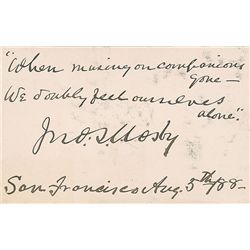 "When musing on companions
gone—
We doubly feel ourselves
alone."
Jno. S. Mosby
San Francisco Aug. 5th/88–